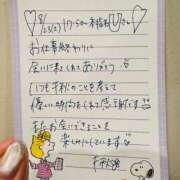 8/23(土) 1ワ:5の本指名Uさん
お仕事終わりに
会いに来てくれてありがとう
いつも千秋のこと考えて
優しい時間をくれて感謝です
またお会いできることを
楽しみにしています
千秋